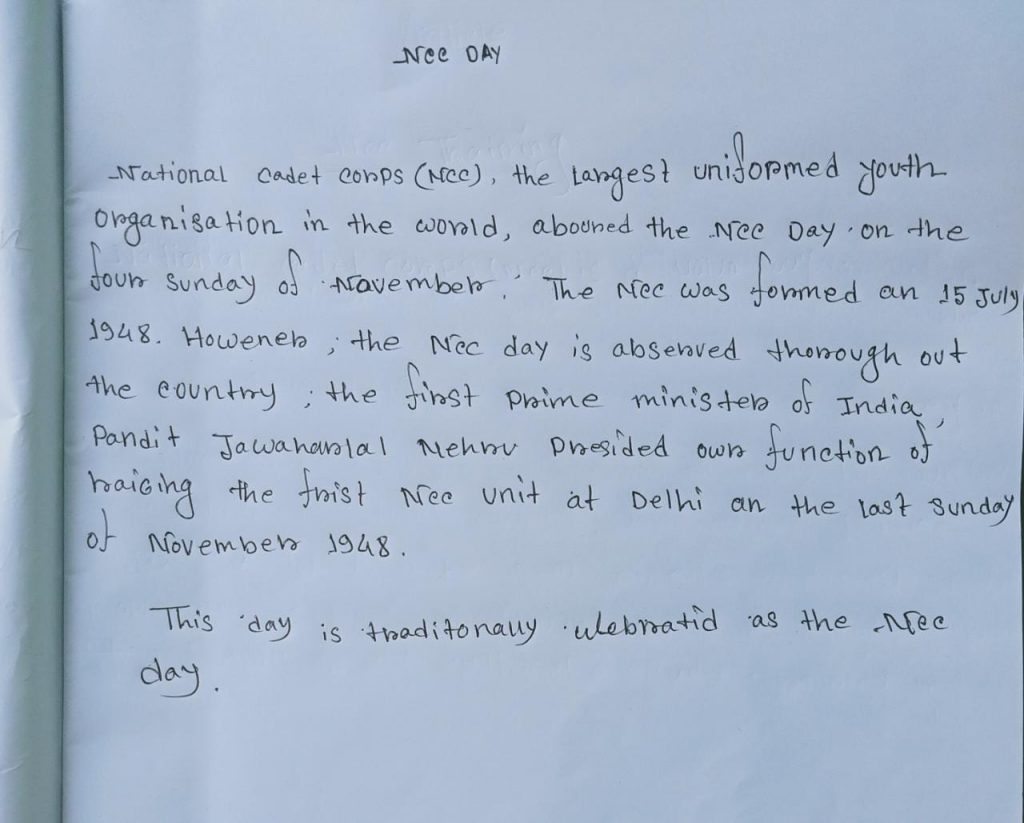 NCC DAY
National cadet corps (NCC), the Largest uniformed youth
organisation in the world, aboured the NCC Day on the
four sunday of November. The NCC was formed an 15 July
1948. Howener, the NCC day is abserved thorough out
the country; the first prime minister of India,
Pandit Jawaharlal Nehru presided own function of
raising the frist NCC unit at Delhi an the last Sunday
of November 1948.
This day is traditonally celebratid as the NCC
day.